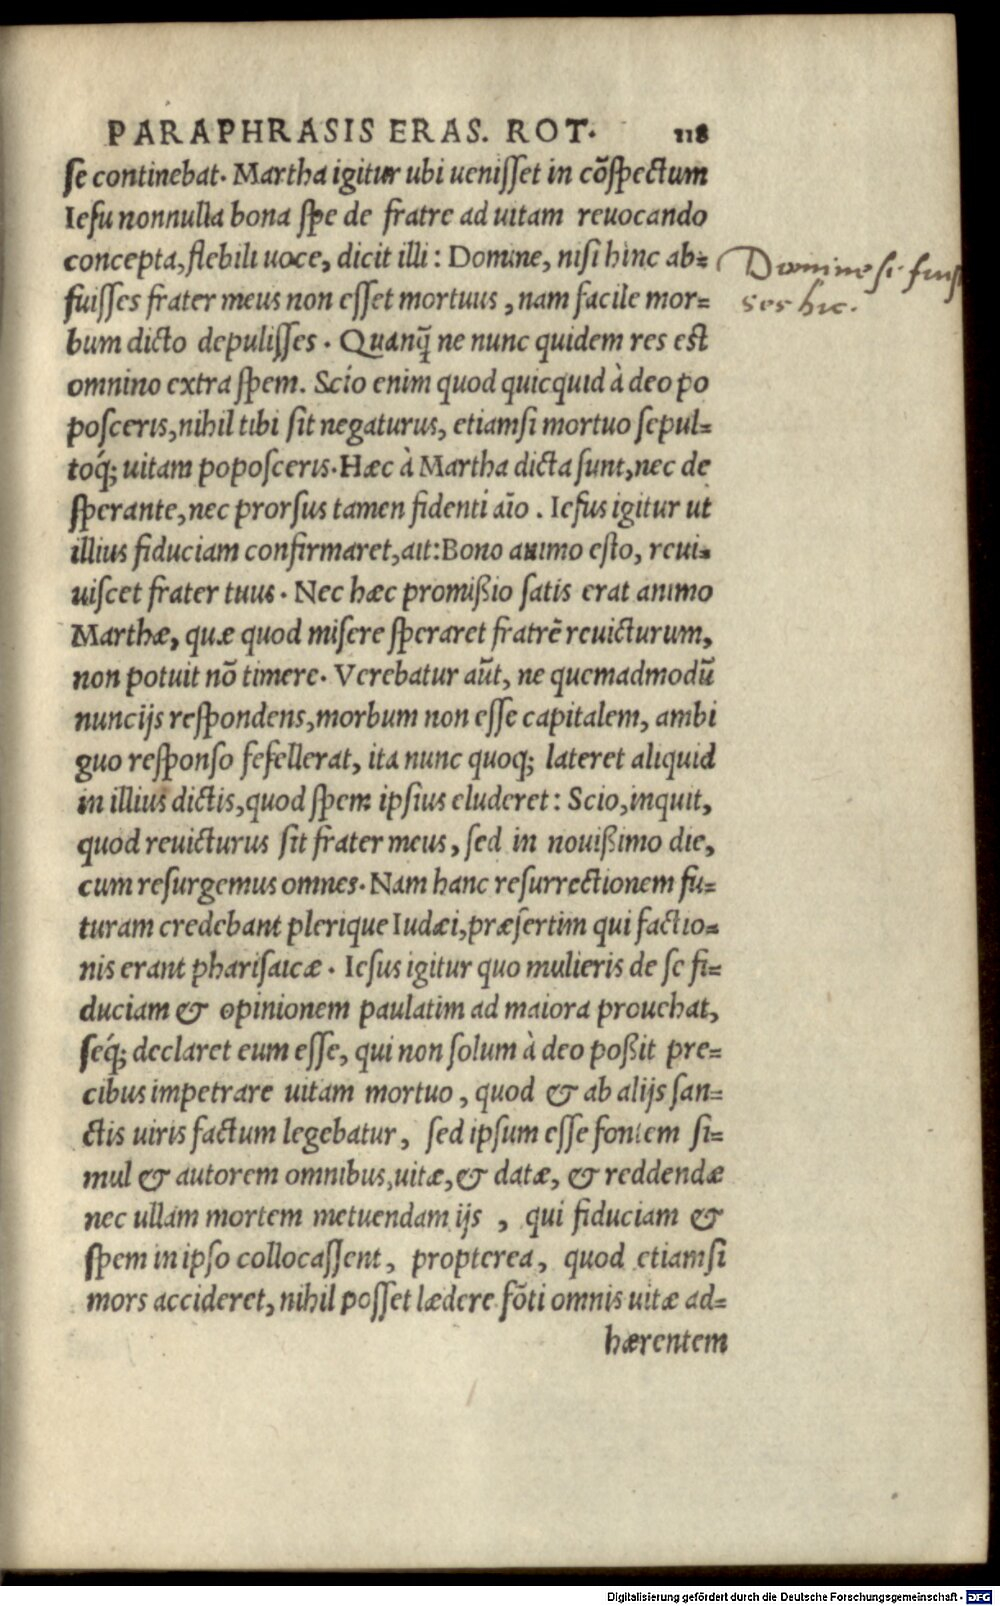 PARAPHRASIS ERAS. ROT. 118
ſe continebat. Martha igitur ubi ueniſſet in cõſpectum
Ieſu nonnulla bona ſpe de fratre ad uitam reuocando
concepta, flebili uoce, dicit illi: Domine, niſi hinc ab=
fuiſſes frater meus non eſſet mortuus, nam facile mor=
bum dicto depuliſſes. Quanq̃ ne nunc quidem res est
omnino extra ſpem. Scio enim quod quicquid à deo po
poſceris, nihil tibi ſit negaturus, etiamſi mortuo ſepul=
toq́; uitam popoſceris. Hæc à Martha dicta ſunt, nec de
ſperante, nec prorſus tamen fidenti aĩo. Ieſus igitur ut
illius fiduciam confirmaret, ait: Bono animo eſto, reui=
uiſcet frater tuus. Nec hæc promißio ſatis erat animo
Marthæ, quæ quod miſere ſperaret fratrẽ reuicturum,
non potuit nõ timere. Verebatur aũt, ne quemadmodũ
nuncijs reſpondens, morbum non eſſe capitalem, ambi
guo reſponſo fefellerat, ita nunc quoq; lateret aliquid
in illius dictis, quod ſpem ipſius eluderet: Scio, inquit,
quod reuicturus ſit frater meus, ſed in nouißimo die,
cum reſurgemus omnes. Nam hanc reſurrectionem fu=
turam credebant plerique Iudæi, præſertim qui factio=
nis erant phariſaicæ. Ieſus igitur quo mulieris de ſe fi=
duciam & opinionem paulatim ad maiora prouehat,
ſeq́; declaret eum eſſe, qui non ſolum à deo poßit pre=
cibus impetrare uitam mortuo, quod & ab alijs ſan=
ctis uiris factum legebatur, ſed ipſum eſſe fontem ſi=
mul & autorem omnibus, uitæ, & datæ, & reddendæ
nec ullam mortem metuendam ijs, qui fiduciam &
ſpem in ipſo collocaſſent, propterea, quod etiamſi
mors accideret, nihil poſſet lædere fõti omnis uitæ ad=
hærentem
Domine ſi fuiſ
ses hic.
Digitalisierung gefördert durch die Deutsche Forschungsgemeinschaft - DFG